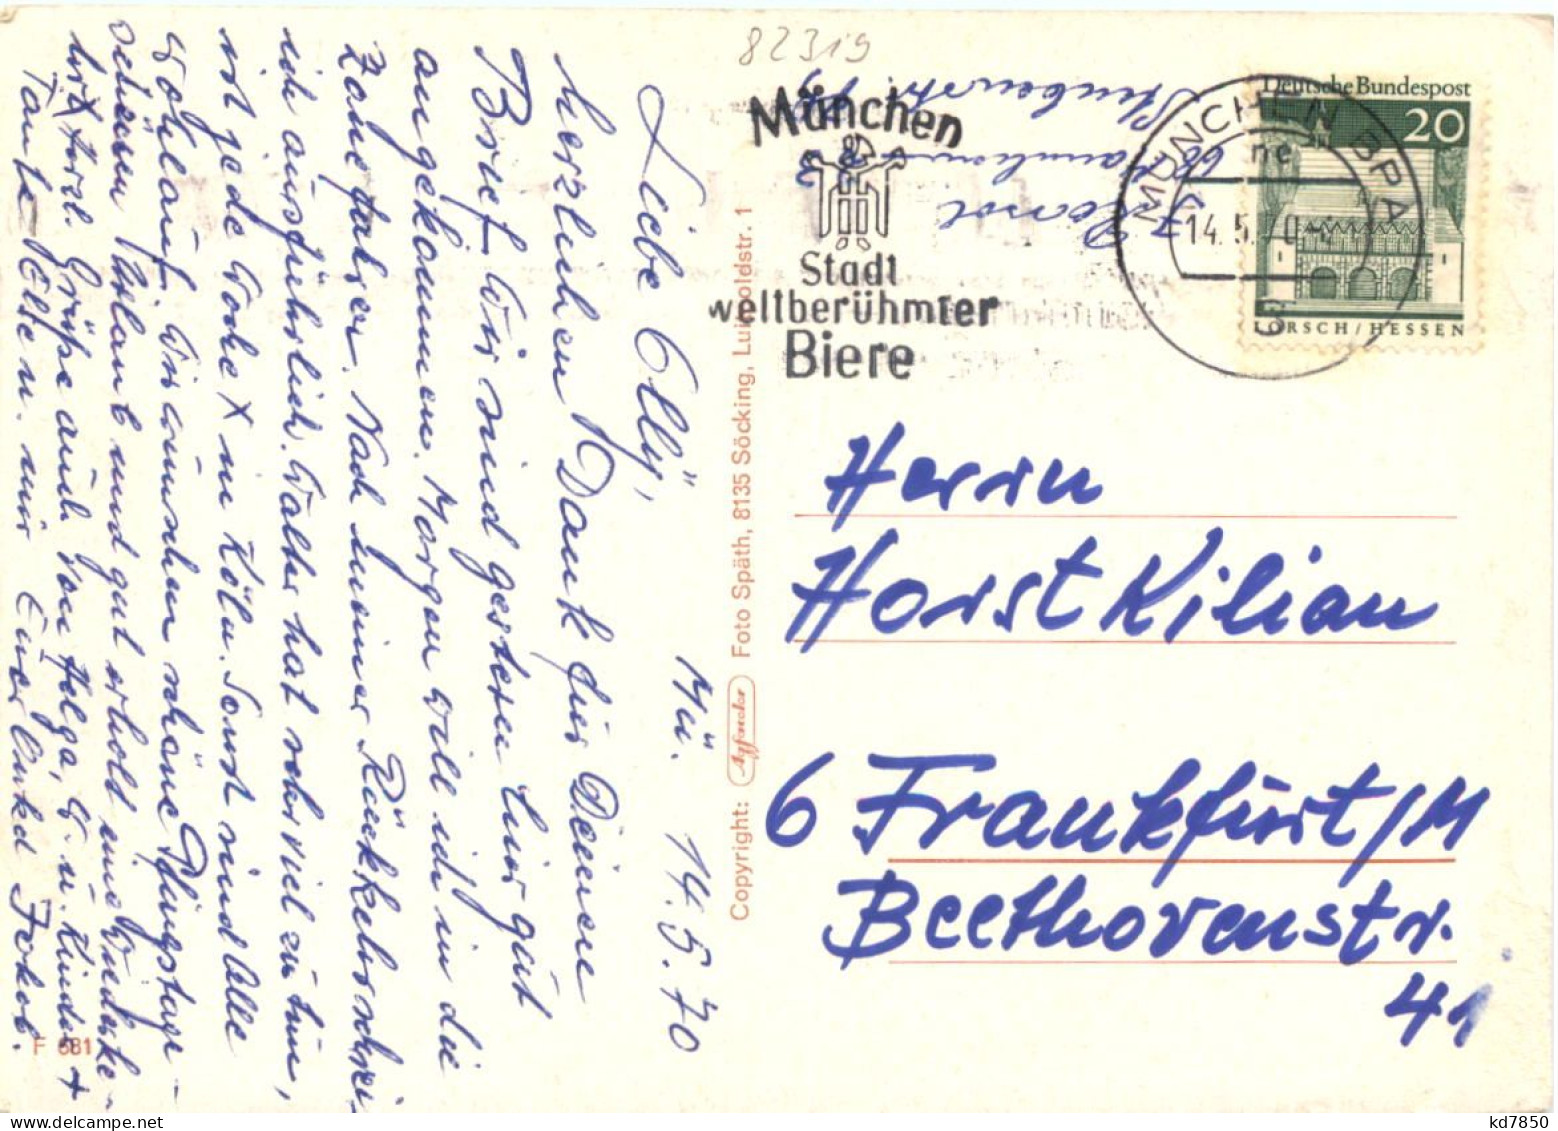 82319
München
Stadt
weltberühmter
Biere
MÜNCHEN BPA
14.5.70
Deutsche Bundespost
20
LORSCH/HESSEN
Mü. 14.5.70
Liebe Elly,
herzlichen Dank für Deinen
Brief. Wir sind gestern hier gut
angekommen. Morgen will ich in die
Zone fahren. Nach meiner Rückkehr schrei
ich ausführlich. Walter hat sehr viel zu tun,
ist jede Woche X in Köln. Sonst sind alle
wohlauf. Wir wünschen schöne Pfingstage -
schönen Urlaub und gut erholt uns Wiederse-
hen. Herzl. Grüße auch von Helga, W. u. Kinder +
Tante Else u. mir Euer Onkel Jakob.
F 681
Copyright: Foto Späth, 8135 Söcking, Luitpoldstr. 1
Herrn
Horst Kilian
6 Frankfurt/M
Beethovenstr.
41